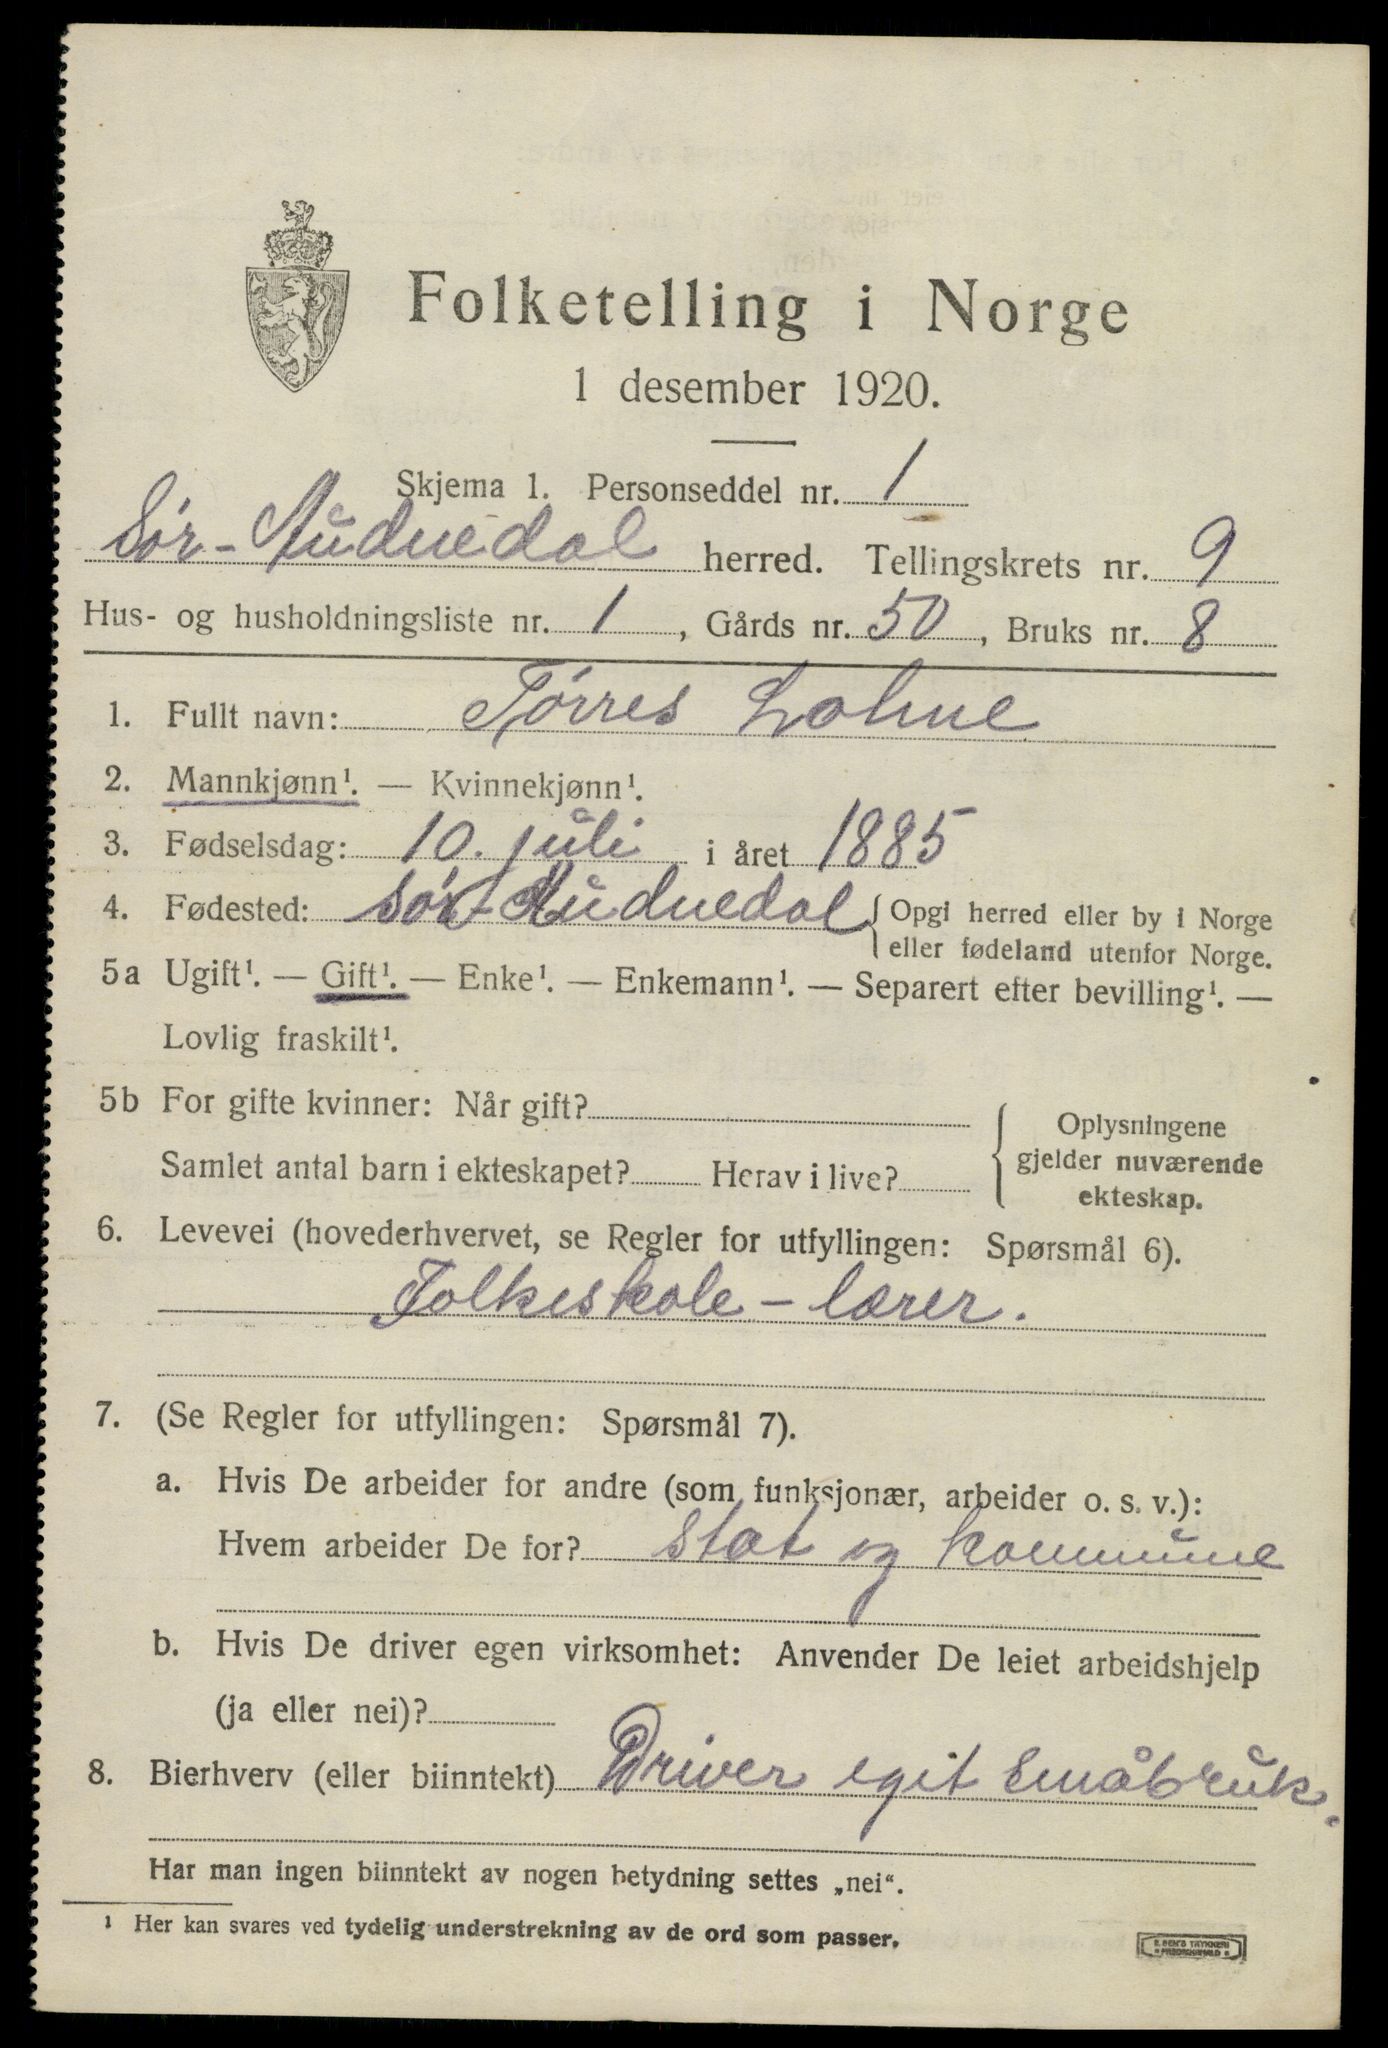 Folketelling i Norge
1 desember 1920.
Skjema 1. Personseddel nr. 1
Sør-Audnedal herred. Tellingskrets nr. 9
Hus- og husholdningsliste nr. 1, Gårds nr. 50, Bruks nr. 8
1. Fullt navn: Tørres Lohne
2. Mannkjønn¹. — Kvinnekjønn¹.
3. Fødselsdag: 10. juli i året 1885
4. Fødested: Sør-Audnedal { Opgi herred eller by i Norge
eller fødeland utenfor Norge.
5a Ugift¹. — Gift¹. — Enke¹. — Enkemann¹. — Separert efter bevilling¹. —
Lovlig fraskilt¹.
5b For gifte kvinner: Når gift?
Samlet antal barn i ekteskapet? Herav i live?
Oplysningene
gjelder nuværende
ekteskap.
6. Levevei (hovederhvervet, se Regler for utfyllingen: Spørsmål 6).
Folkeskole-lærer.
7. (Se Regler for utfyllingen: Spørsmål 7).
a. Hvis De arbeider for andre (som funksjonær, arbeider o. s. v.):
Hvem arbeider De for? Stat og kommune
b. Hvis De driver egen virksomhet: Anvender De leiet arbeidshjelp
(ja eller nei)?
8. Bierhverv (eller biinntekt) Driver eget Småbruk.
Har man ingen biinntekt av nogen betydning settes „nei“.
¹ Her kan svares ved tydelig understrekning av de ord som passer.